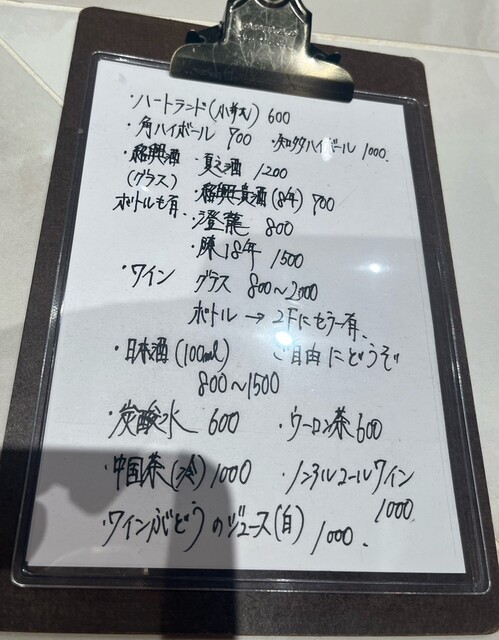 ・ハートランド(小びん) 600
・角ハイボール 700 ・知多ハイボール 1000.
・紹興酒 ・夏之酒 1200
(グラス) ・紹興貴酒(8年) 700
ボトルも有. ・澄龍 800
・陳18年 1500
・ワイン グラス 800～2000
ボトル → 2Fにセラー有、
・日本酒(100ml) ご自由にどうぞ
800～1500
・炭酸水 600 ・ウーロン茶 600
・中国茶(冷) 1000 ・ノンアルコールワイン
1000
・ワインぶどうのジュース(白) 1000.